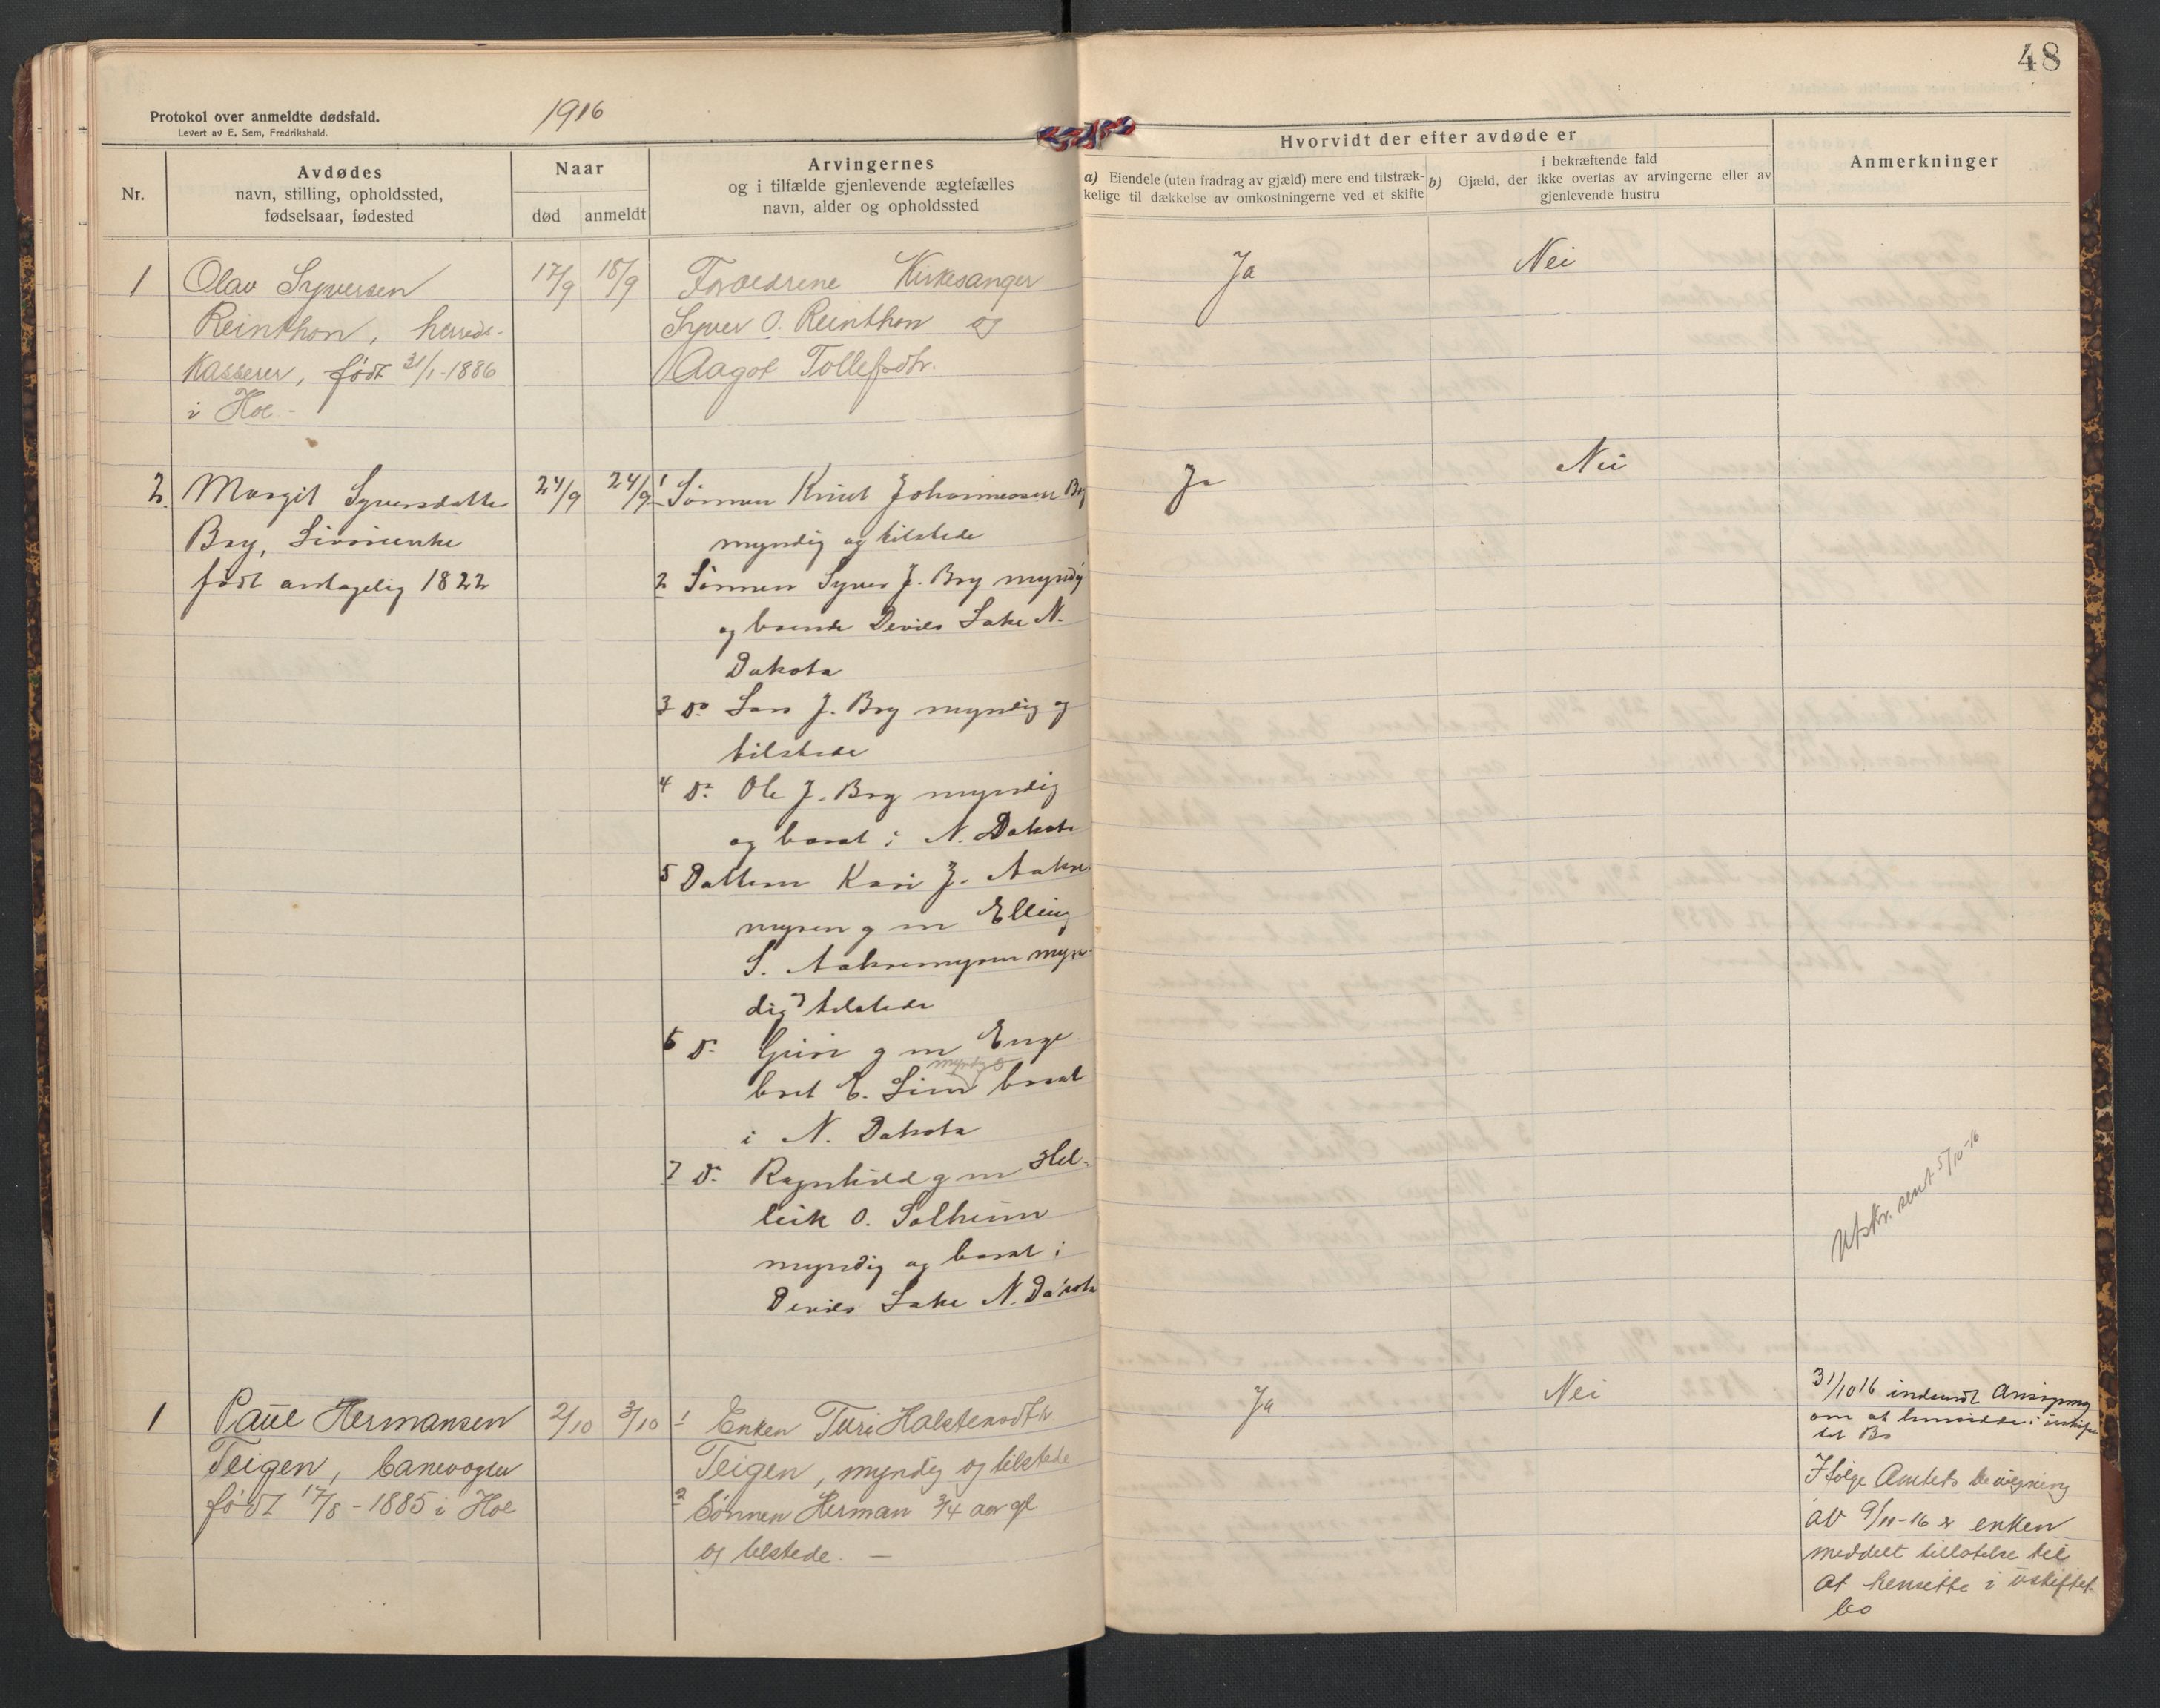 48
Protokol over anmeldte dødsfald.
Levert av E. Sem, Fredrikshald.
1916
Nr.
Avdødes
navn, stilling, opholdssted,
fødselsaar, fødested
Naar
død
anmeldt
Arvingernes
og i tilfælde gjenlevende ægtefælles
navn, alder og opholdssted
Hvorvidt der efter avdøde er
a) Eiendele (uten fradrag av gjæld) mere end tilstræk-
kelige til dækkelse av omkostningerne ved et skifte
i bekræftende fald
b) Gjæld, der ikke overtas av arvingerne eller av
gjenlevende hustru
Anmerkninger
1
Olav Syversen
Reinthon, herreds-
kasserer, født 31/1-1886
i Hol -
17/9
18/9
Forældrene Kirkesanger
Syver O. Reinthon og
Aagot Tollefsdtr.
Ja
Nei
2.
Margit Syversdatter
Bry, Livørienke
født antagelig 1822
24/9
24/9
1 Sønnen Knut Johannessen Bry
myndig og tilstede
2 Sønnen Syver J. Bry myndig
og boende Devils Lake N.
Dakota
3 Do Lars J. Bry myndig og
tilstede
4 Do Ole J. Bry myndig
og bosat i N. Dakota
5 Datteren Kari J. Aakre
myren g m Elling
S. Aakremyren myn-
dig og tilstede
6 Do Guri g m Enge
bret E. Lien myndig bosat
i N. Dakota
7 Do Ragnhild g m Hel-
leik O. Solheim
myndig og bosat i
Devils Lake N. Dakota
Ja
Nei
Utskr. sent 5/10-16
1
Paul Hermansen
Teigen, banevogter
født 17/8-1885 i Hol
2/10
3/10
1 Enken Turi Halstensdtr
Teigen, myndig og tilstede
2 Sønnen Herman 3/4 aar gl
og tilstede. -
Ja
Nei
31/10 16 indsendt Ansøgning
om at hensidde i uskiftet
Bo
Ifølge Amtets bevilgning
av 9/11-16 er enken
meddelt tillatelse til
at hensitte i uskiftet
bo